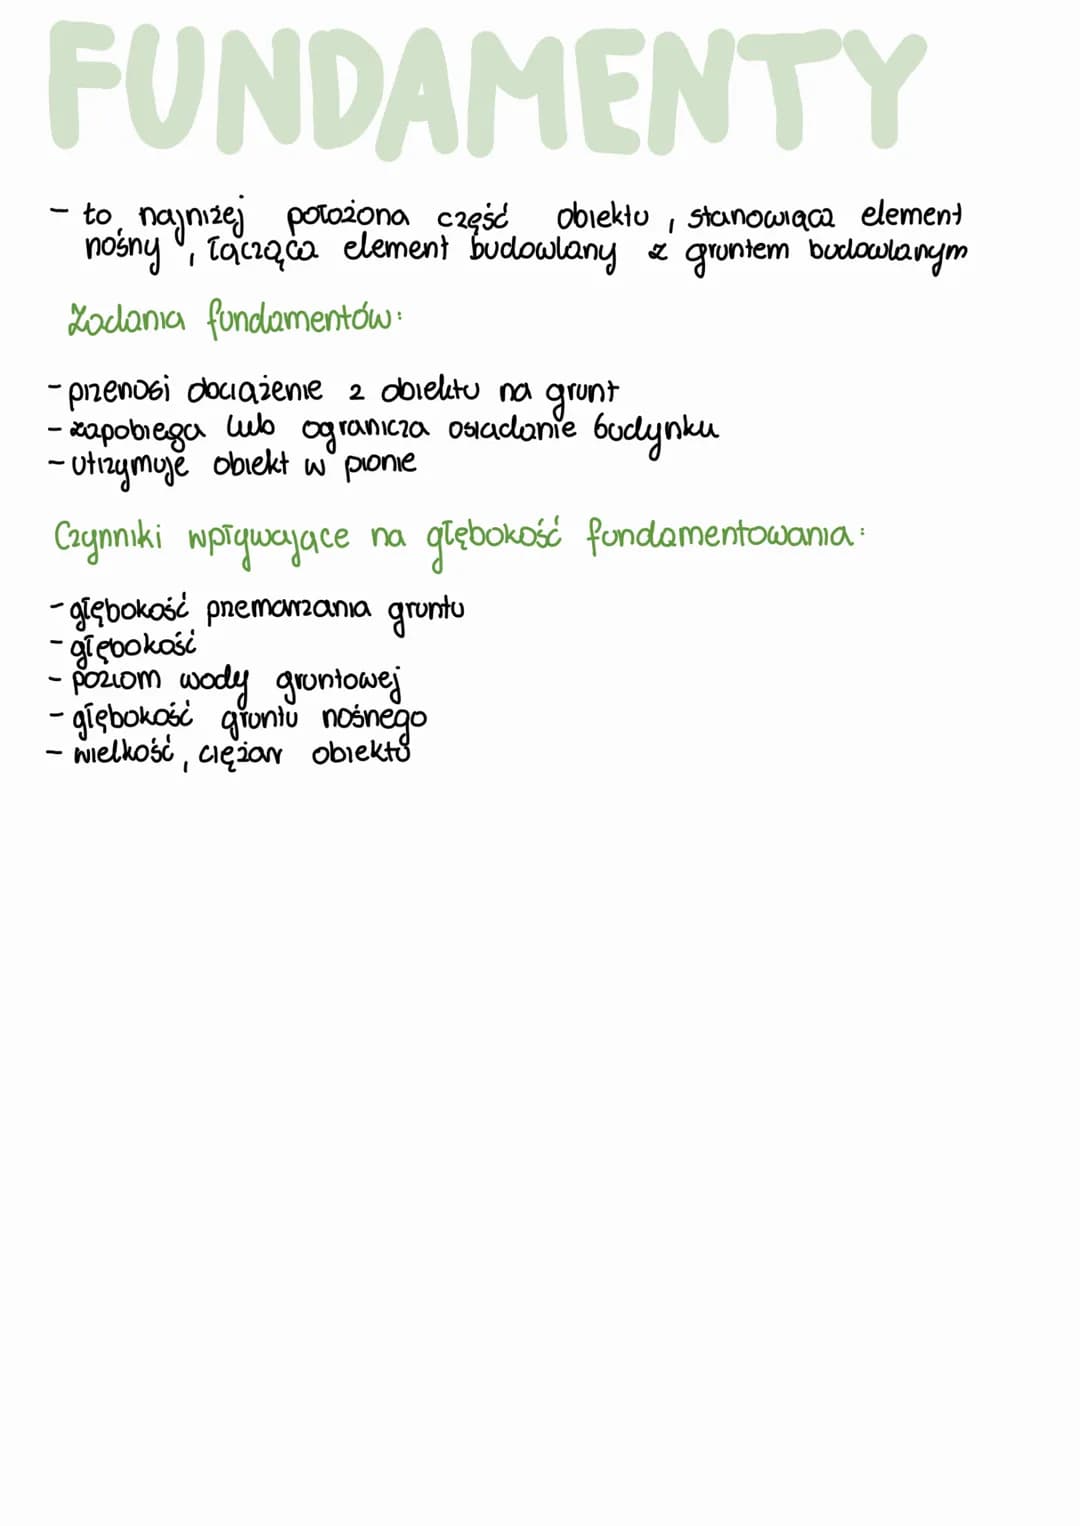 FUNDAMENTY
- to najniżej położona część obiektu, stanowiąca element
nośny, łącząca element budowlany z gruntem budowlanym
Zadania fundamentów:
- przenosi dociążenie z obiektu na grunt
- zapobiega lub ogranicza osiadanie budynku
- utrzymuje obiekt w pionie
Czynniki wpływające na głębokość fundamentowania:
- głębokość przemarzania gruntu
- głębokość
- poziom wody gruntowej
- głębokość gruntu nośnego
- wielkość, ciężar obiektu